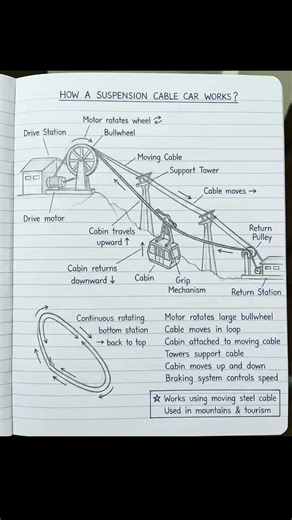 HOW A SUSPENSION CABLE CAR WORKS?
Motor rotates wheel
Drive Station
Bullwheel
Moving Cable
Support Tower
Cable moves →
Drive motor
Cabin travels
upward ↑
Return
Pulley
Cabin returns
downward ↓
Cabin
Grip
Mechanism
Return Station
Continuous rotating
bottom station
→ back to top
Motor rotates large bullwheel
Cable moves in loop
Cabin attached to moving cable
Towers support cable
Cabin moves up and down
Braking system controls speed
☆ Works using moving steel cable
Used in mountains & tourism